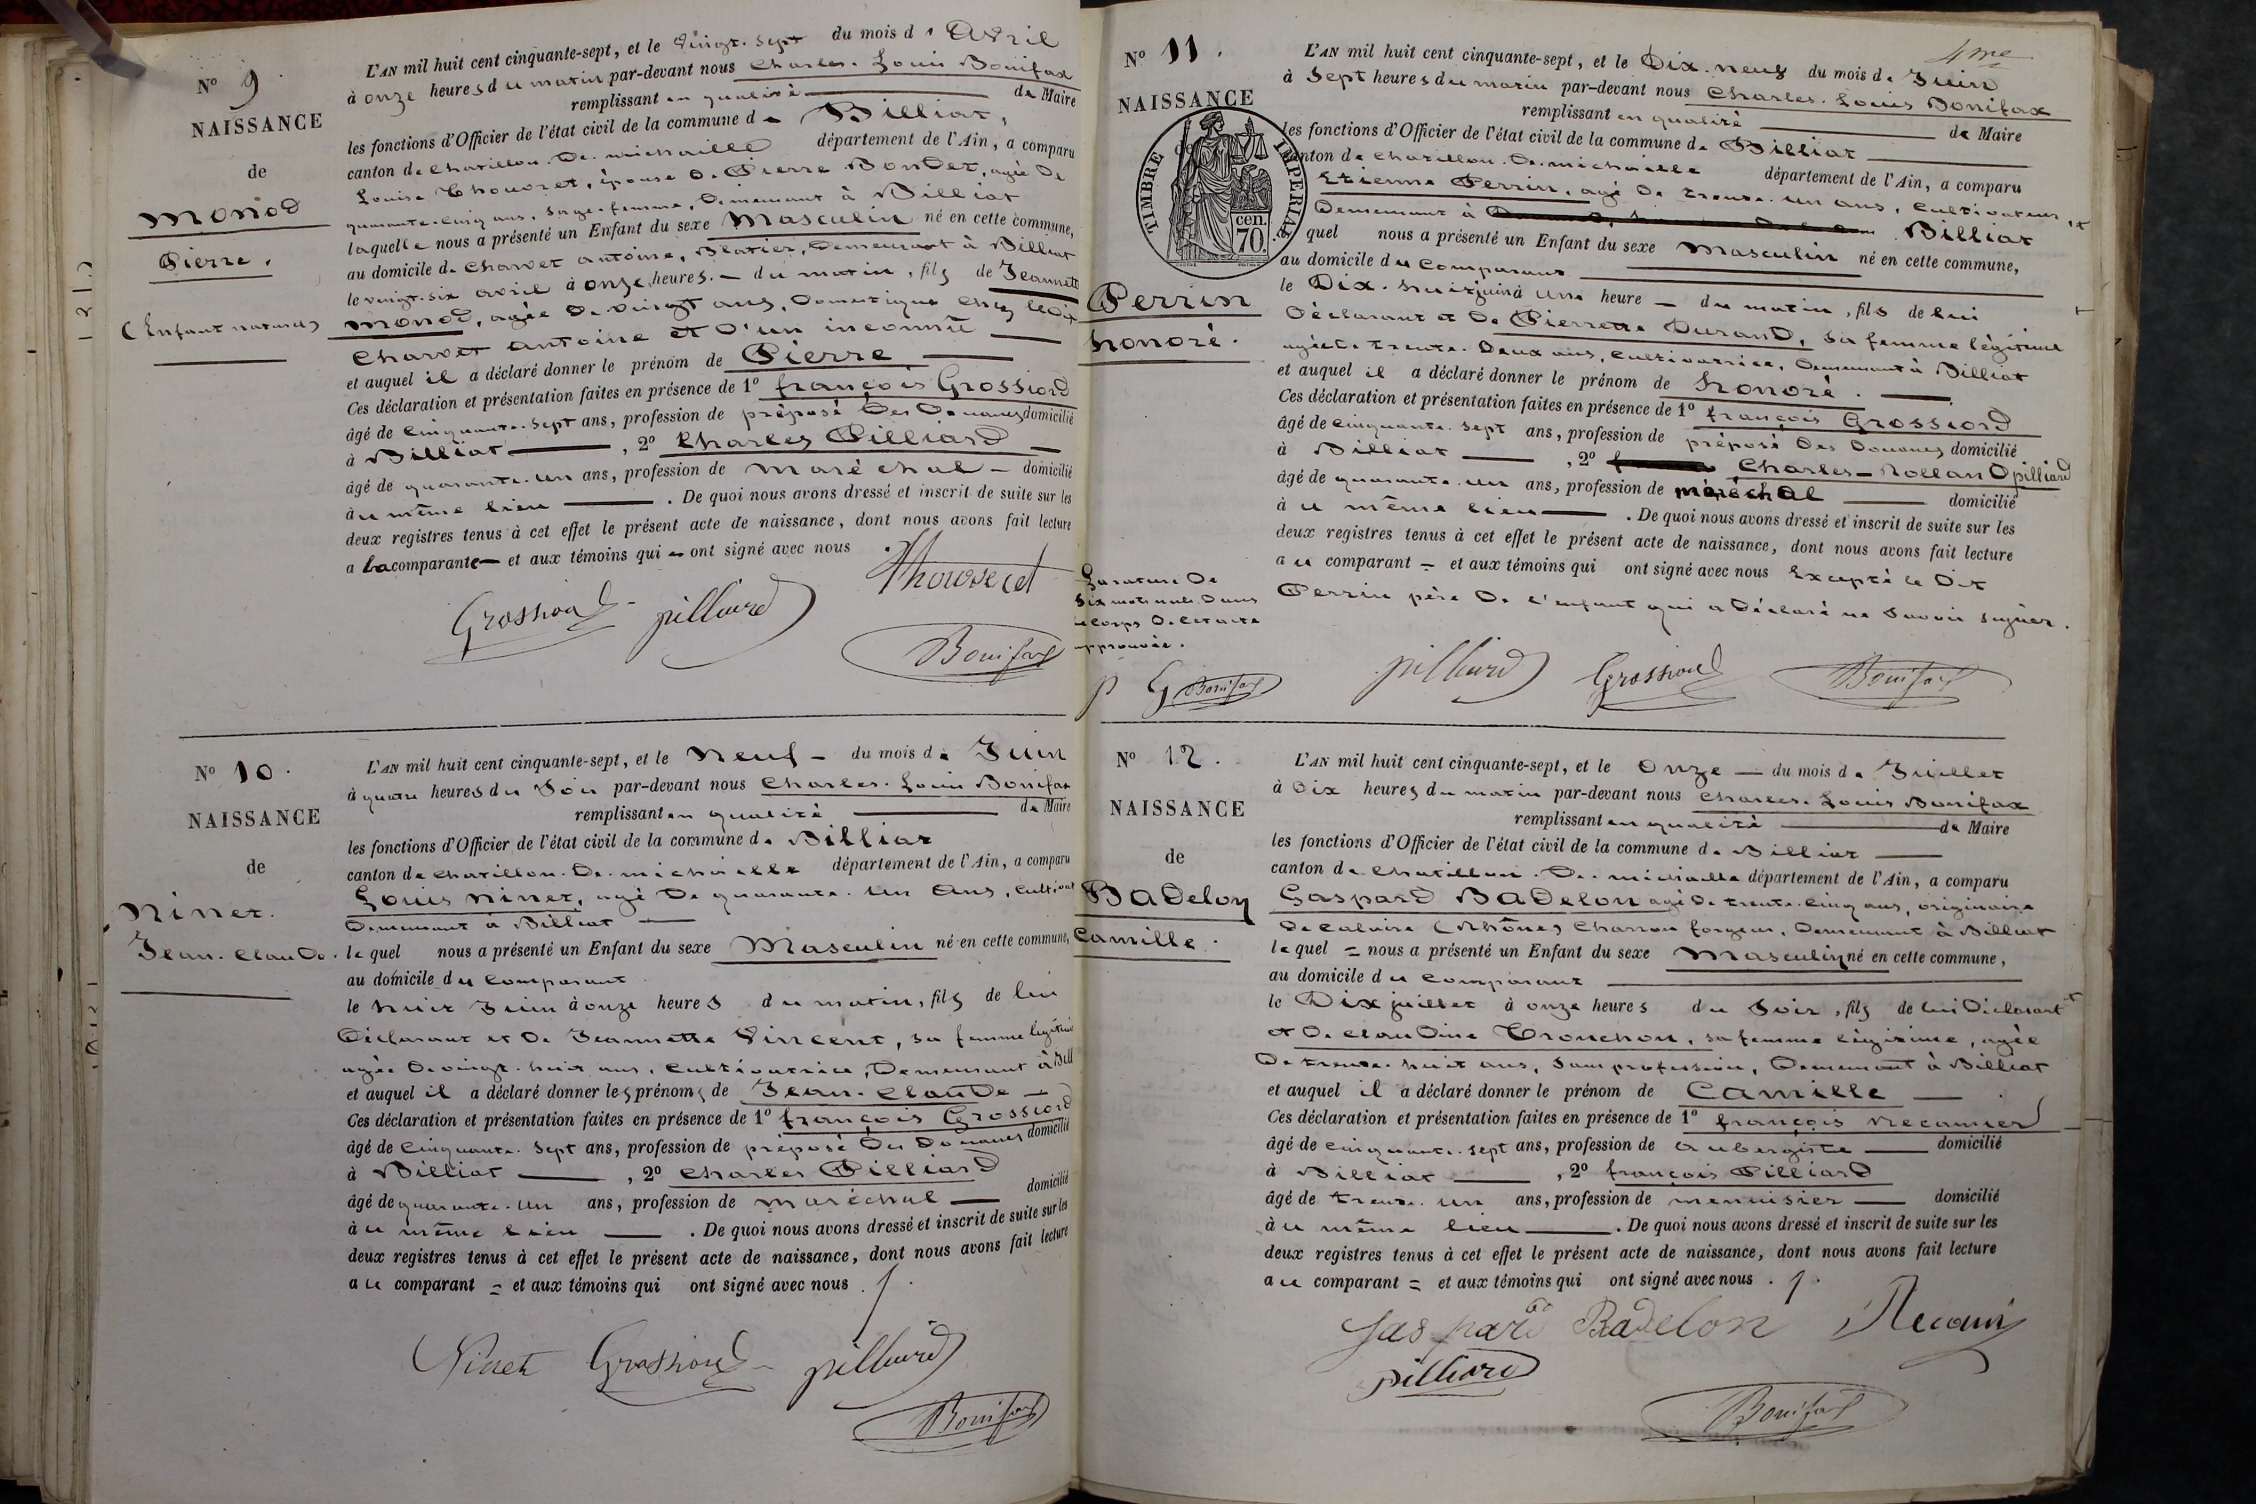 N° 9
NAISSANCE
de
Monod
Pierre.
(Enfant naturel)
L'AN mil huit cent cinquante-sept, et le Vingt-sept du mois d'Avril
à onze heures du matin par-devant nous Charles-Louis Bonifax
remplissant en qualité de Maire
les fonctions d'Officier de l'état civil de la commune de Billiat,
canton de Chatillon-De-michaille département de l'Ain, a comparu
Louise Thouvret, épouse De Pierre Bondet, agée De
quarante-cinq ans, sage-femme, Demeurant à Billiat
laquelle nous a présenté un Enfant du sexe Masculin né en cette commune,
au domicile de Charvet antoine, Platier, Demeurant à Billiat
le vingt-six avril à onze heures du matin, fils de Jeannette
Monod, agée De vingt ans, Domestique chez ledit
Charvet antoine et D'un inconnu
et auquel il a déclaré donner le prénom de Pierre
Ces déclaration et présentation faites en présence de 1° françois Grossiord
âgé de Cinquante-sept ans, profession de préposé Des Douanes domicilié
à Billiat, 2° Charles Pilliard
âgé de quarante-un ans, profession de maréchal domicilié
au même lieu. De quoi nous avons dressé et inscrit de suite sur les
deux registres tenus à cet effet le présent acte de naissance, dont nous avons fait lecture
a la comparante et aux témoins qui ont signé avec nous.
Thouveret
Grossiord pilliard
Bonifax
N° 10.
NAISSANCE
de
Ninet.
Jean-Claude.
L'AN mil huit cent cinquante-sept, et le Neuf du mois de Juin
à quatre heures du Soir par-devant nous Charles-Louis Bonifax
remplissant en qualité de Maire
les fonctions d'Officier de l'état civil de la commune de Billiat
canton de Chatillon-De-michaille département de l'Ain, a comparu
Louis Ninet, agé De quarante-un ans, Cultivat
Demeurant à Billiat
lequel nous a présenté un Enfant du sexe Masculin né en cette commune,
au domicile du Comparant
le huit Juin à onze heures du matin, fils de lui
Déclarant et De Jeannette Vincent, sa femme légitime
agée De vingt-huit ans, Cultivatrice, Demeurant à Bill
et auquel il a déclaré donner les prénoms de Jean-Claude
Ces déclaration et présentation faites en présence de 1° françois Grossiord
âgé de Cinquante-sept ans, profession de préposé Des Douanes domicilié
à Billiat, 2° Charles Pilliard
âgé de quarante-un ans, profession de maréchal domicilié
à u même lieu. De quoi nous avons dressé et inscrit de suite sur les
deux registres tenus à cet effet le présent acte de naissance, dont nous avons fait lecture
a u comparant = et aux témoins qui ont signé avec nous.
Ninet Grossiord pilliard
Bonifax
4me
N° 11.
NAISSANCE
de
TIMBRE IMPERIAL
cen.
70.
Perrin
honoré.
L'AN mil huit cent cinquante-sept, et le Dix-neuf du mois de Juin
à Sept heures du matin par-devant nous Charles-Louis Bonifax
remplissant en qualité de Maire
les fonctions d'Officier de l'état civil de la commune de Billiat
canton de Chatillon-De-michaille département de l'Ain, a comparu
Etienne Perrin, agé De trente-un ans, Cultivateur,
Demeurant à Billiat
quel nous a présenté un Enfant du sexe Masculin né en cette commune,
au domicile du Comparant
le Dix-huit juin à une heure du matin, fils de lui
Déclarant et De Pierrette Durand, sa femme légitime
agée De trente-Deux ans, Cultivatrice, Demeurant à Billiat
et auquel il a déclaré donner le prénom de honoré.
Ces déclaration et présentation faites en présence de 1° françois Grossiord
âgé de Cinquante-sept ans, profession de préposé Des Douanes domicilié
à Billiat, 2° Charles-Rolland pilliard
âgé de quarante-un ans, profession de maréchal domicilié
à u même lieu. De quoi nous avons dressé et inscrit de suite sur les
deux registres tenus à cet effet le présent acte de naissance, dont nous avons fait lecture
a u comparant = et aux témoins qui ont signé avec nous Excepté le Dit
Perrin père De l'enfant qui a Déclaré ne Savoir signer.
La rature De
Six mots nuls Dans
le Corps De cet acte
approuvée.
p G Bonifax
pilliard Grossiord Bonifax
N° 12.
NAISSANCE
de
Badelon
Camille.
L'AN mil huit cent cinquante-sept, et le Onze du mois de Juillet
à Dix heures du matin par-devant nous Charles-Louis Bonifax
remplissant en qualité de Maire
les fonctions d'Officier de l'état civil de la commune de Billiat
canton de Chatillon-De-michaille département de l'Ain, a comparu
Gaspard Badelon agé De trente-cinq ans, originaire
De Caluire (Rhône) Charron forgeur, Demeurant à Billiat
lequel = nous a présenté un Enfant du sexe Masculin né en cette commune,
au domicile du Comparant
le Dix juillet à onze heures du Soir, fils de lui Déclarant
et De Claudine Tronchon, sa femme légitime, agée
De trente-huit ans, Sans profession, Demeurant à Billiat
et auquel il a déclaré donner le prénom de Camille.
Ces déclaration et présentation faites en présence de 1° françois Recamier
âgé de Cinquante-sept ans, profession de aubergiste domicilié
à Billiat, 2° françois Pilliard
âgé de trente-un ans, profession de menuisier domicilié
à u même lieu. De quoi nous avons dressé et inscrit de suite sur les
deux registres tenus à cet effet le présent acte de naissance, dont nous avons fait lecture
a u comparant = et aux témoins qui ont signé avec nous.
Gaspard Badelon
pilliard
Bonifax